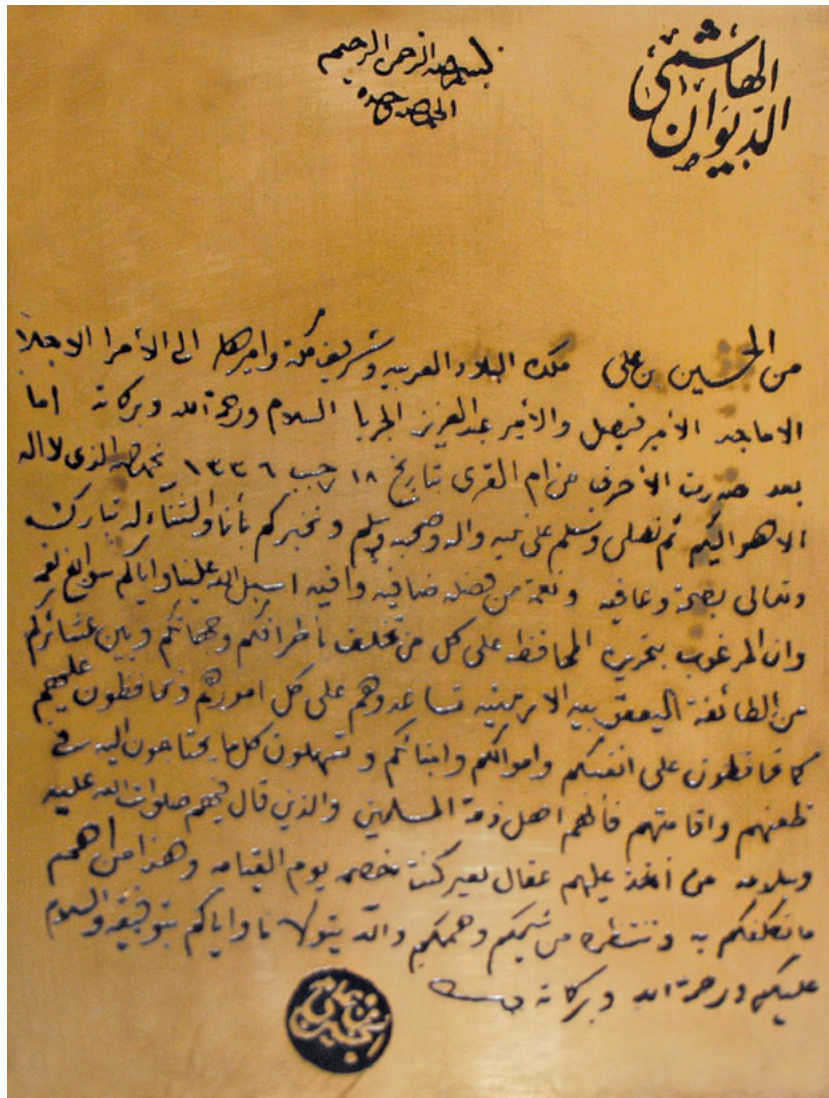 الديوان الهاشمي
بسم الله الرحمن الرحيم
الحمد لله وحده
من الحسين بن علي ملك البلاد العربية وشريف مكة واميرها الى الأمرا الاجلاء
الاماجد الأمير فيصل والأمير عبدالعزيز الجربا السلام ورحمة الله وبركاته اما
بعد صدرت الأحرف من ام القرى تاريخ ١٨ رجب ١٣٣٦ نحمد الله الذي لا اله
الا هو اليكم ثم نصلي ونسلم على نبيه واله وصحبه وسلم ونخبركم بأنا والثناء له تبارك
وتعالى بصحة وعافيه ونعمة من فضله ضافيه وافيه اسبل الله علينا واياكم سوابغ نعمه
وان المرغوب بتحريره المحافظة على كل من تخلف بأطرافكم وجهاتكم وبين عشائركم
من الطائفة اليعقوبيه الارمنيه تساعدوهم على كل امورهم وتحافظون عليهم
كما تحافظون على انفسكم واموالكم وابنائكم وتسهلون كل ما يحتاجون اليه في
ظعنهم واقامتهم فأنهم اهل ذمة المسلمين والذين قال فيهم صلوات الله عليه
وسلامه من أخذ عليهم عقال بعير كنت خصمه يوم القيامه وهذا من اهم
ما نكلفكم به وننتظره من شيمكم وهممكم والله يتولانا واياكم بتوفيقه والسلام
عليكم ورحمة الله وبركاته
الحسين بن علي